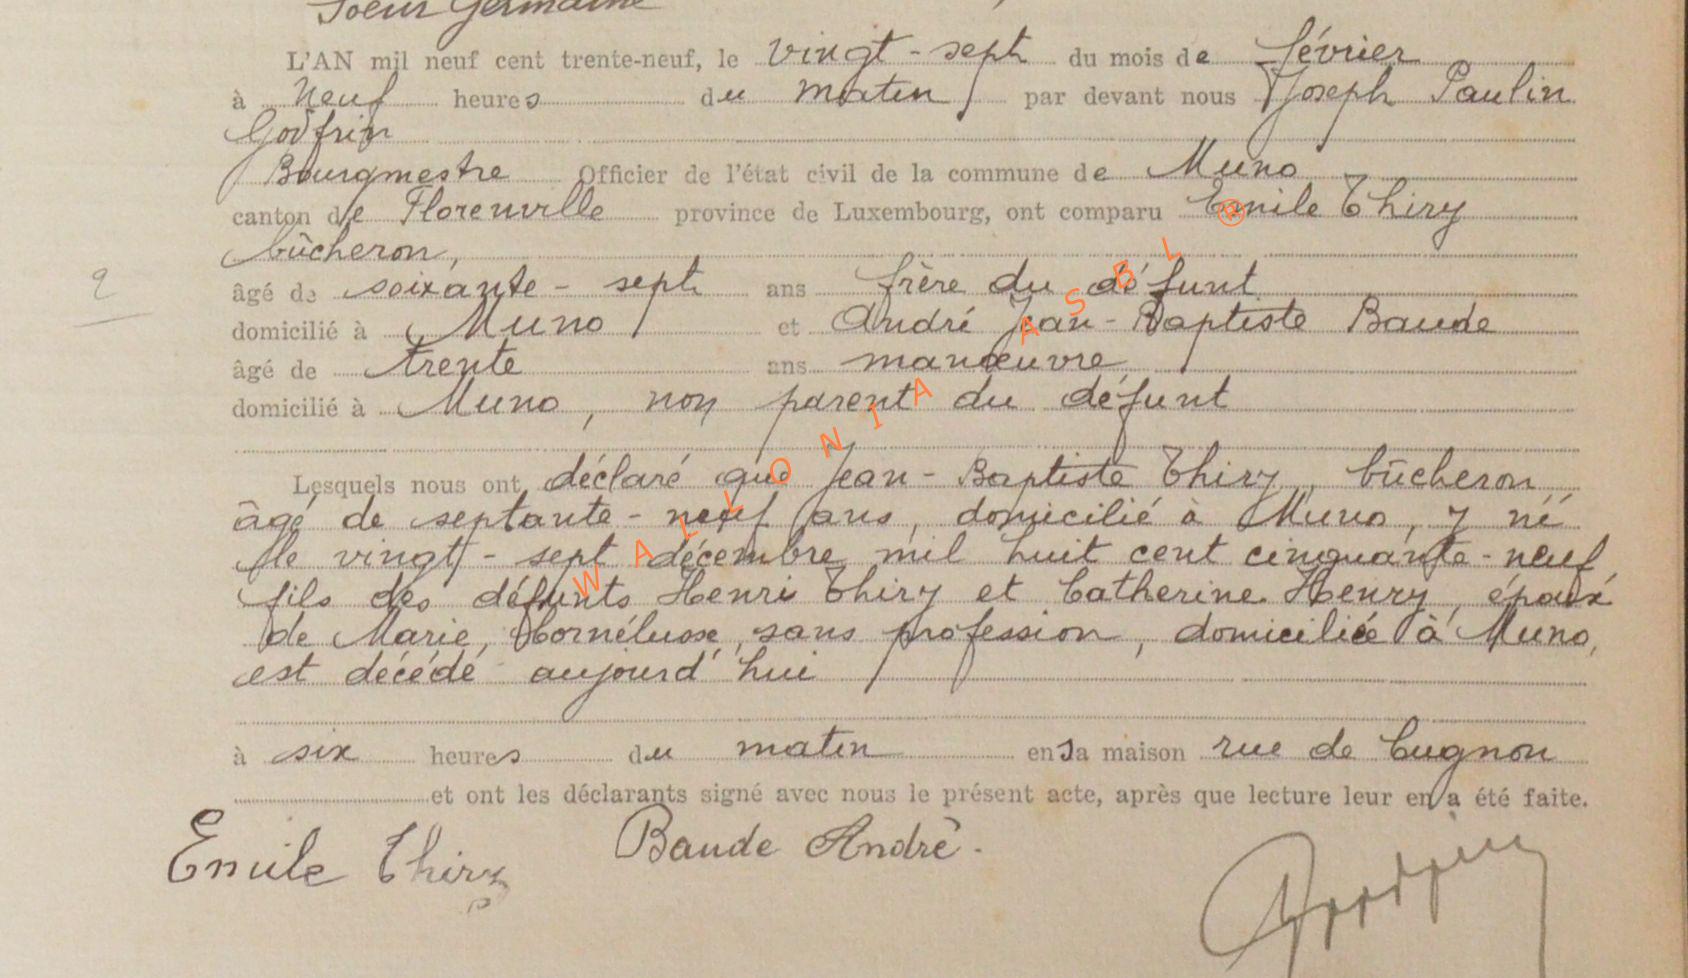 Soeur Germaine
L'AN mil neuf cent trente-neuf, le vingt-sept du mois de février
à Neuf heures du matin par devant nous Joseph Paulin
Godfrin
Bourgmestre Officier de l'état civil de la commune de Muno
canton de Florenville province de Luxembourg, ont comparu Emile Thiry
bûcheron,
âgé de soixante-sept ans frère du défunt
domicilié à Muno et André Jean-Baptiste Baude
âgé de trente ans manœuvre
domicilié à Muno, non parent du défunt
Lesquels nous ont déclaré que Jean-Baptiste Thiry, bûcheron
âgé de septante-neuf ans, domicilié à Muno, y né
le vingt-sept décembre mil huit cent cinquante-neuf
fils des défunts Henri Thiry et Catherine Henry, époux
de Marie, sans profession, domiciliée à Muno,
est décédé aujourd'hui
à six heures du matin en sa maison rue de Cugnon
et ont les déclarants signé avec nous le présent acte, après que lecture leur en a été faite.
Emile Thiry Baude André.
Godfrin
2
WALLONIA ASBL ®